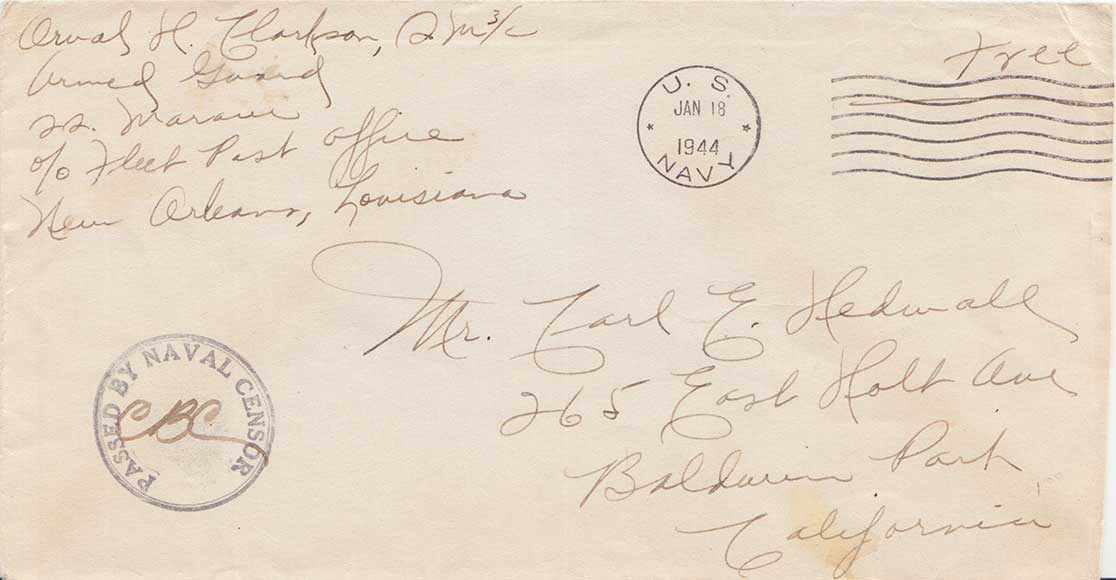 Orval H. Clarkson, SM 3/c
Armed Guard
SS. Marave
c/o Fleet Post Office
New Orleans, Louisiana
U. S.
JAN 18
1944
NAVY
Free
Mr. Carl E. Hedwall
265 East Holt Ave
Baldwin Park
California
PASSED BY NAVAL CENSOR
CBC